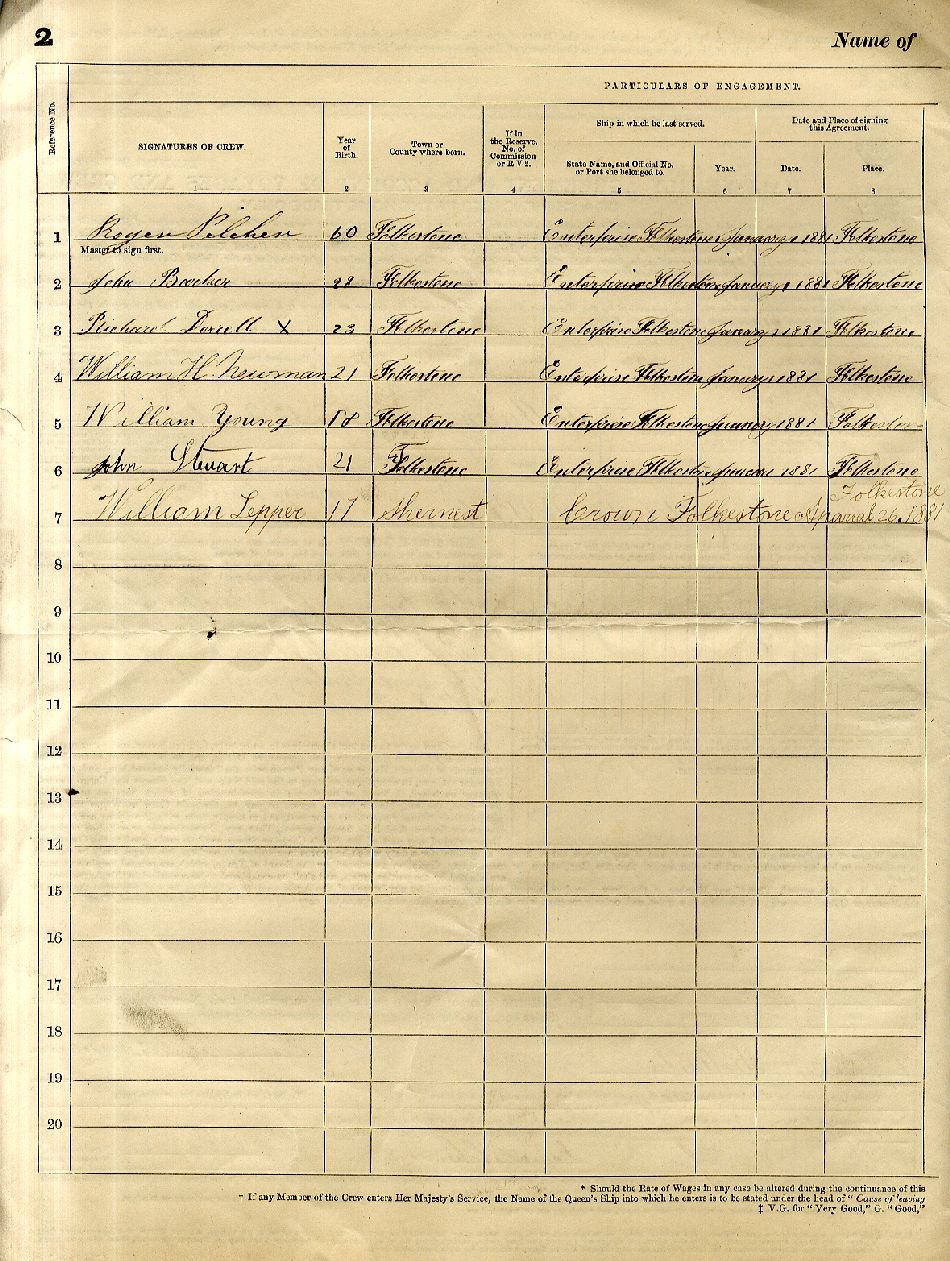 2
Name of
PARTICULARS OF ENGAGEMENT.
Reference No.
SIGNATURES OF CREW.
Year of Birth.
Town or County where born.
If in the Reserve, No. of Commission or R V 2.
Ship in which he last served.
Date and Place of signing this Agreement.
State Name, and Official No. or Port she belonged to.
Year.
Date.
Place.
2 3 4 5 6 7 8
1 Roger Pilcher 60 Folkestone Enterprise Folkestone January 1 1881 Folkestone
Master to sign first.
2 John 28 Folkestone Enterprise Folkestone January 1 1881 Folkestone
3 Richard X 23 Folkestone Enterprise Folkestone January 1 1881 Folkestone
4 William H. Newman 21 Folkestone Enterprise Folkestone January 1881 Folkestone
5 William Young 18 Folkestone Enterprise Folkestone January 1881 Folkestone
6 John Stewart 21 Folkestone Enterprise Folkestone January 1 1881 Folkestone
Folkestone
7 William Lepper 17 Sheernest Crown Folkestone 26. 1881
8
9
10
11
12
13
14
15
16
17
18
19
20
* Should the Rate of Wages in any case be altered during the continuance of this
† If any Member of the Crew enters Her Majesty's Service, the Name of the Queen's Ship into which he enters is to be stated under the head of "Cause of leaving
‡ V.G. for "Very Good," G. "Good,"